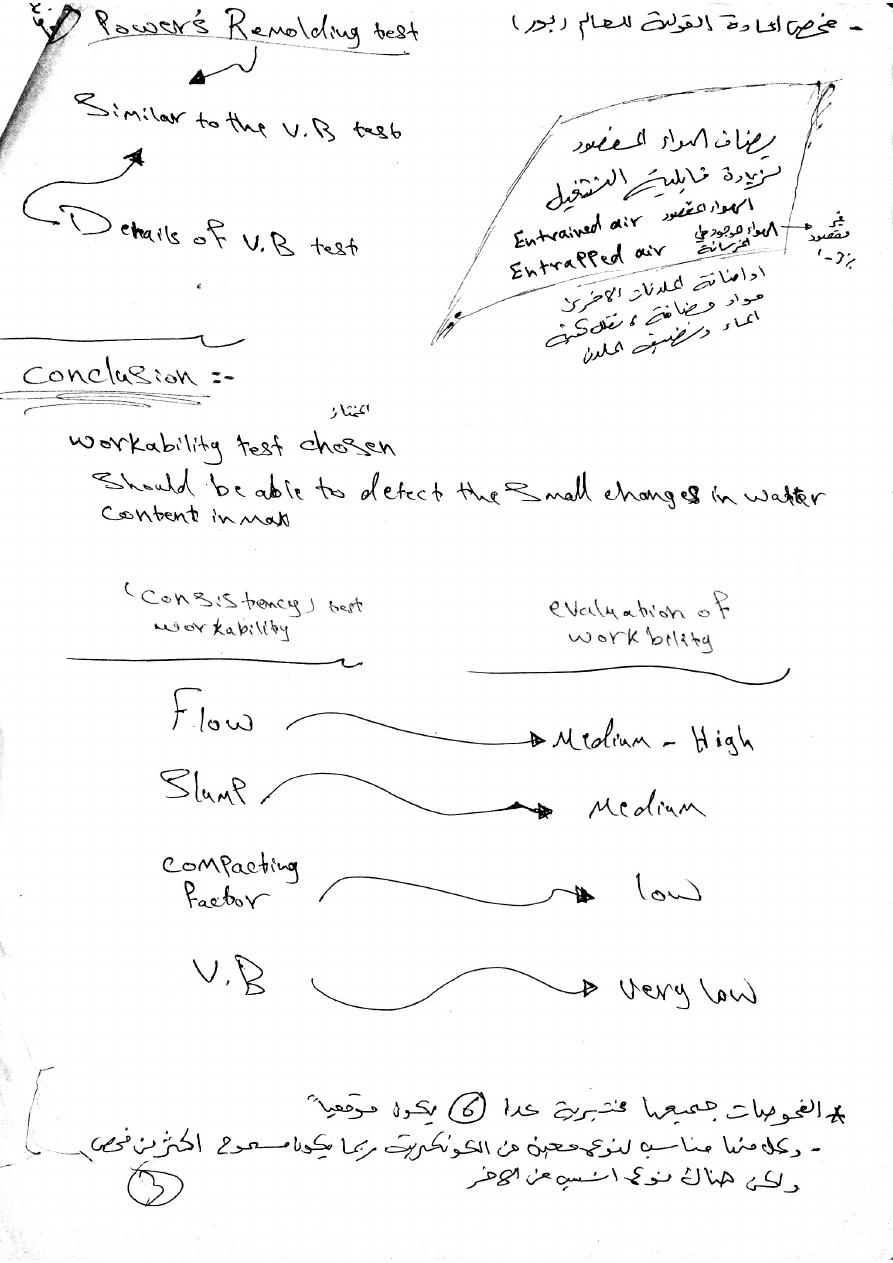 Power's Remolding test
- فحص اعادة القولبة للعالم (بور)
Similar to the V.B test
Details of V.B test
يضاف الهواء المقصود
لزيادة قابلية التشغيل
Entrained air الهواء المقصود
Entrapped air الهواء موجود في الخرسانة
غير مقصود
1-3%
او اضافة الملدنات الاخرى
مواد مضافة، تقلل كمية
الماء وتضيف اللدن
Conclusion :-
المختار
workability test chosen
Should be able to detect the small changes in water
content in max
(Consistency) test
workability
evaluation of
workbility
Flow → Medium - High
Slump → Medium
Compacting
factor → low
V.B → very low
* الفحوصات جميعها مختبرية عدا 6 يكون موقعياً
- وكل منها مناسب لنوع معين من الكونكريت ربما يكون مسموح اكثر من فحص
ولكن هناك نوع انسب من الاخر
3